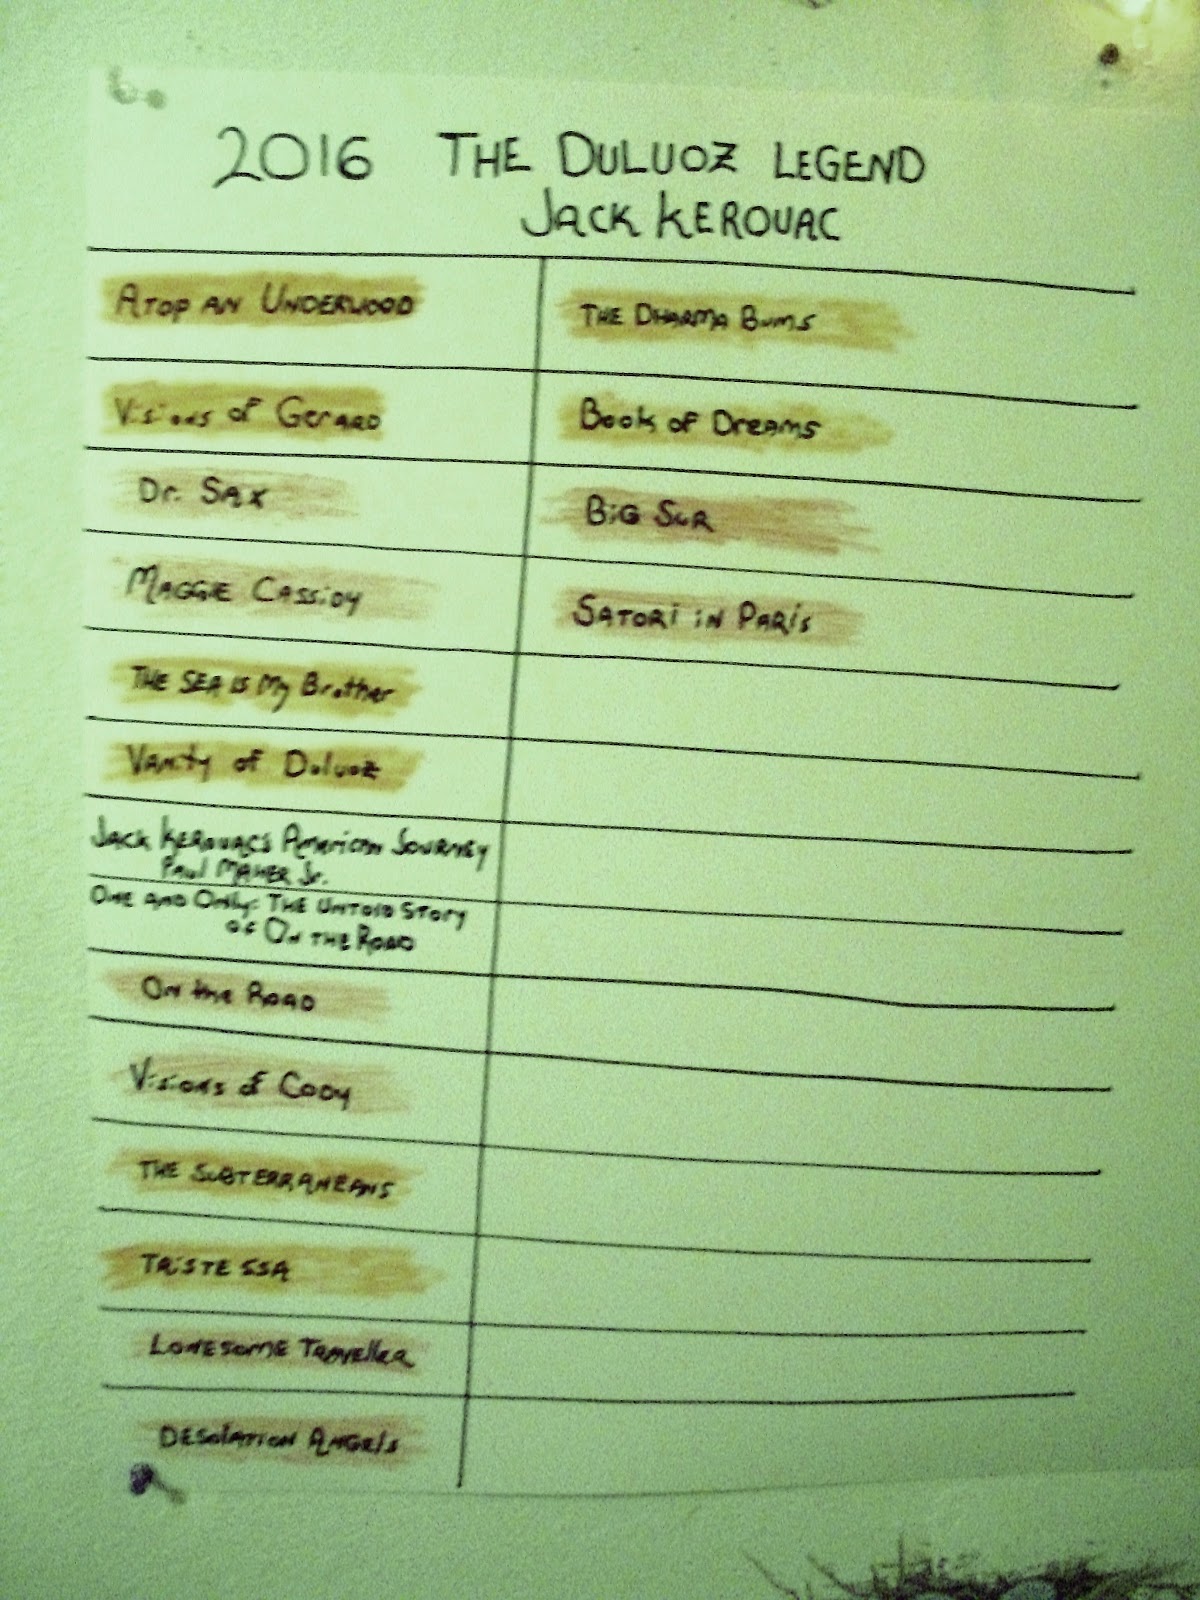 2016 THE DULUOZ LEGEND
JACK KEROUAC
ATOP AN UNDERWOOD
Visions of GerARD
Dr. SAX
MAGGIE CASSiDY
THE SEA IS My Brother
Vanity of Duluoz
JACK KEROUAC'S AMERICAN JOURNEY
PAUL MAHER Jr.
ONE AND ONLY: THE UNTOLD STORY
OF ON THE ROAD
ON the ROAD
Visions of CODY
THE SUBTERRANEANS
TRiSTESSA
LONESOME TRAVELLER
DESOLATION ANGELS
THE DHARMA BUMS
Book of DreAMS
BiG SUR
SATORi iN PARiS